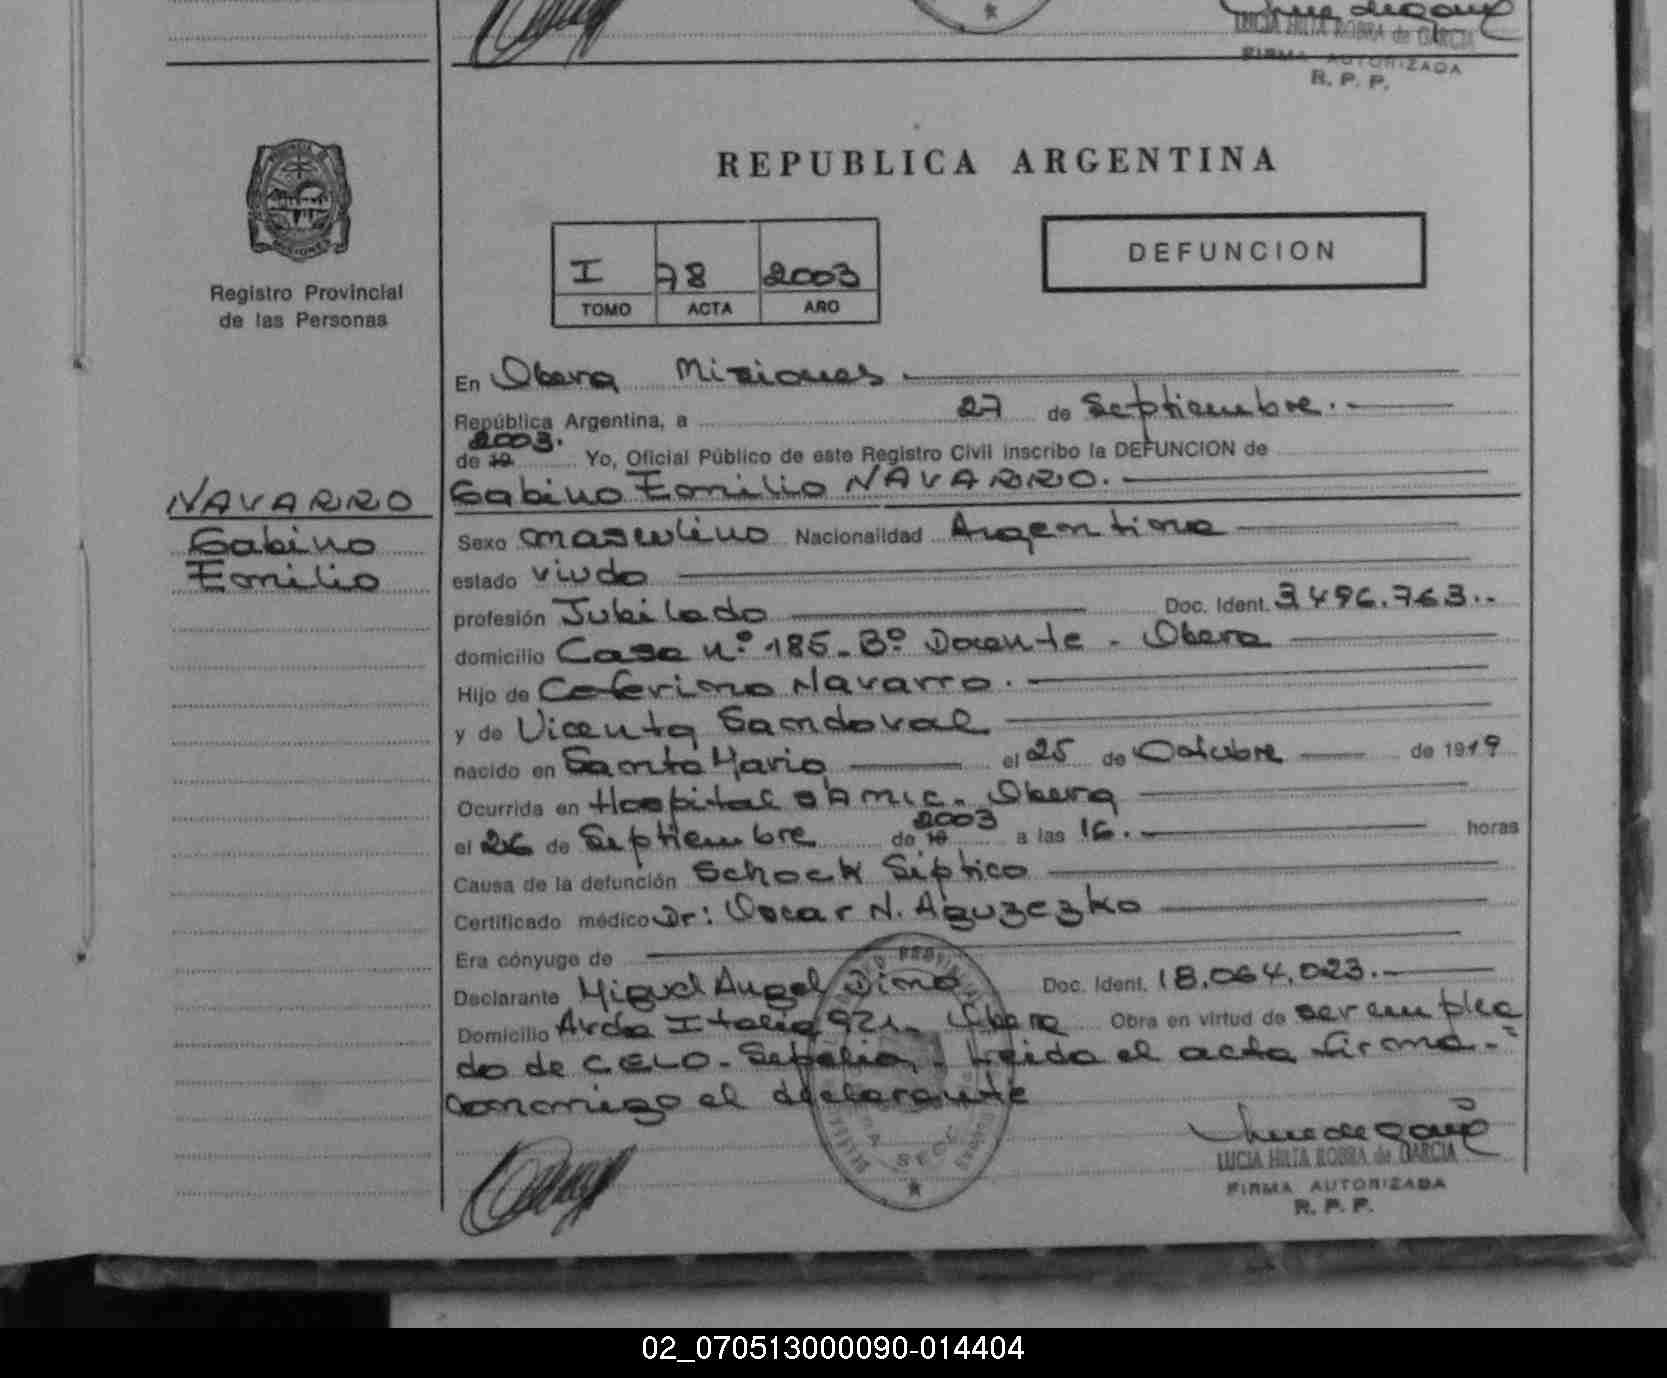 LUCIA HILTA ROBRA de GARCIA
FIRMA AUTORIZADA
R. P. P.
REPUBLICA ARGENTINA
I 78 2003
TOMO ACTA AÑO
DEFUNCION
Registro Provincial
de las Personas
En Obera Misiones
República Argentina, a 27 de Septiembre.
2003.
de 19 Yo, Oficial Público de este Registro Civil inscribo la DEFUNCION de
NAVARRO
Gabino
Emilio
Gabino Emilio NAVARRO.
Sexo masculino Nacionalidad Argentina
estado viudo
profesión Jubilado Doc. Ident. 3.496.763.-
domicilio Casa nº 185 - Bº Docente - Obera
Hijo de Ceferino Navarro.
y de Vicenta Sandoval
nacido en Santa Maria el 25 de Octubre de 1919
Ocurrida en Hospital SAMIC. Obera
2003
el 26 de Septiembre de 19 a las 16. horas
Causa de la defunción Schock Séptico
Certificado médico Dr: Oscar N. Aguzezko
Era cónyuge de
Declarante Miguel Angel Doc. Ident. 18.064.023.
Domicilio Avda Italia 921. Obera Obra en virtud de ser emplea
do de CELO - Sepelio. Leida el acta firma-
conmigo el declarante
LUCIA HILTA ROBRA de GARCIA
FIRMA AUTORIZADA
R. P. P.
02_070513000090-014404